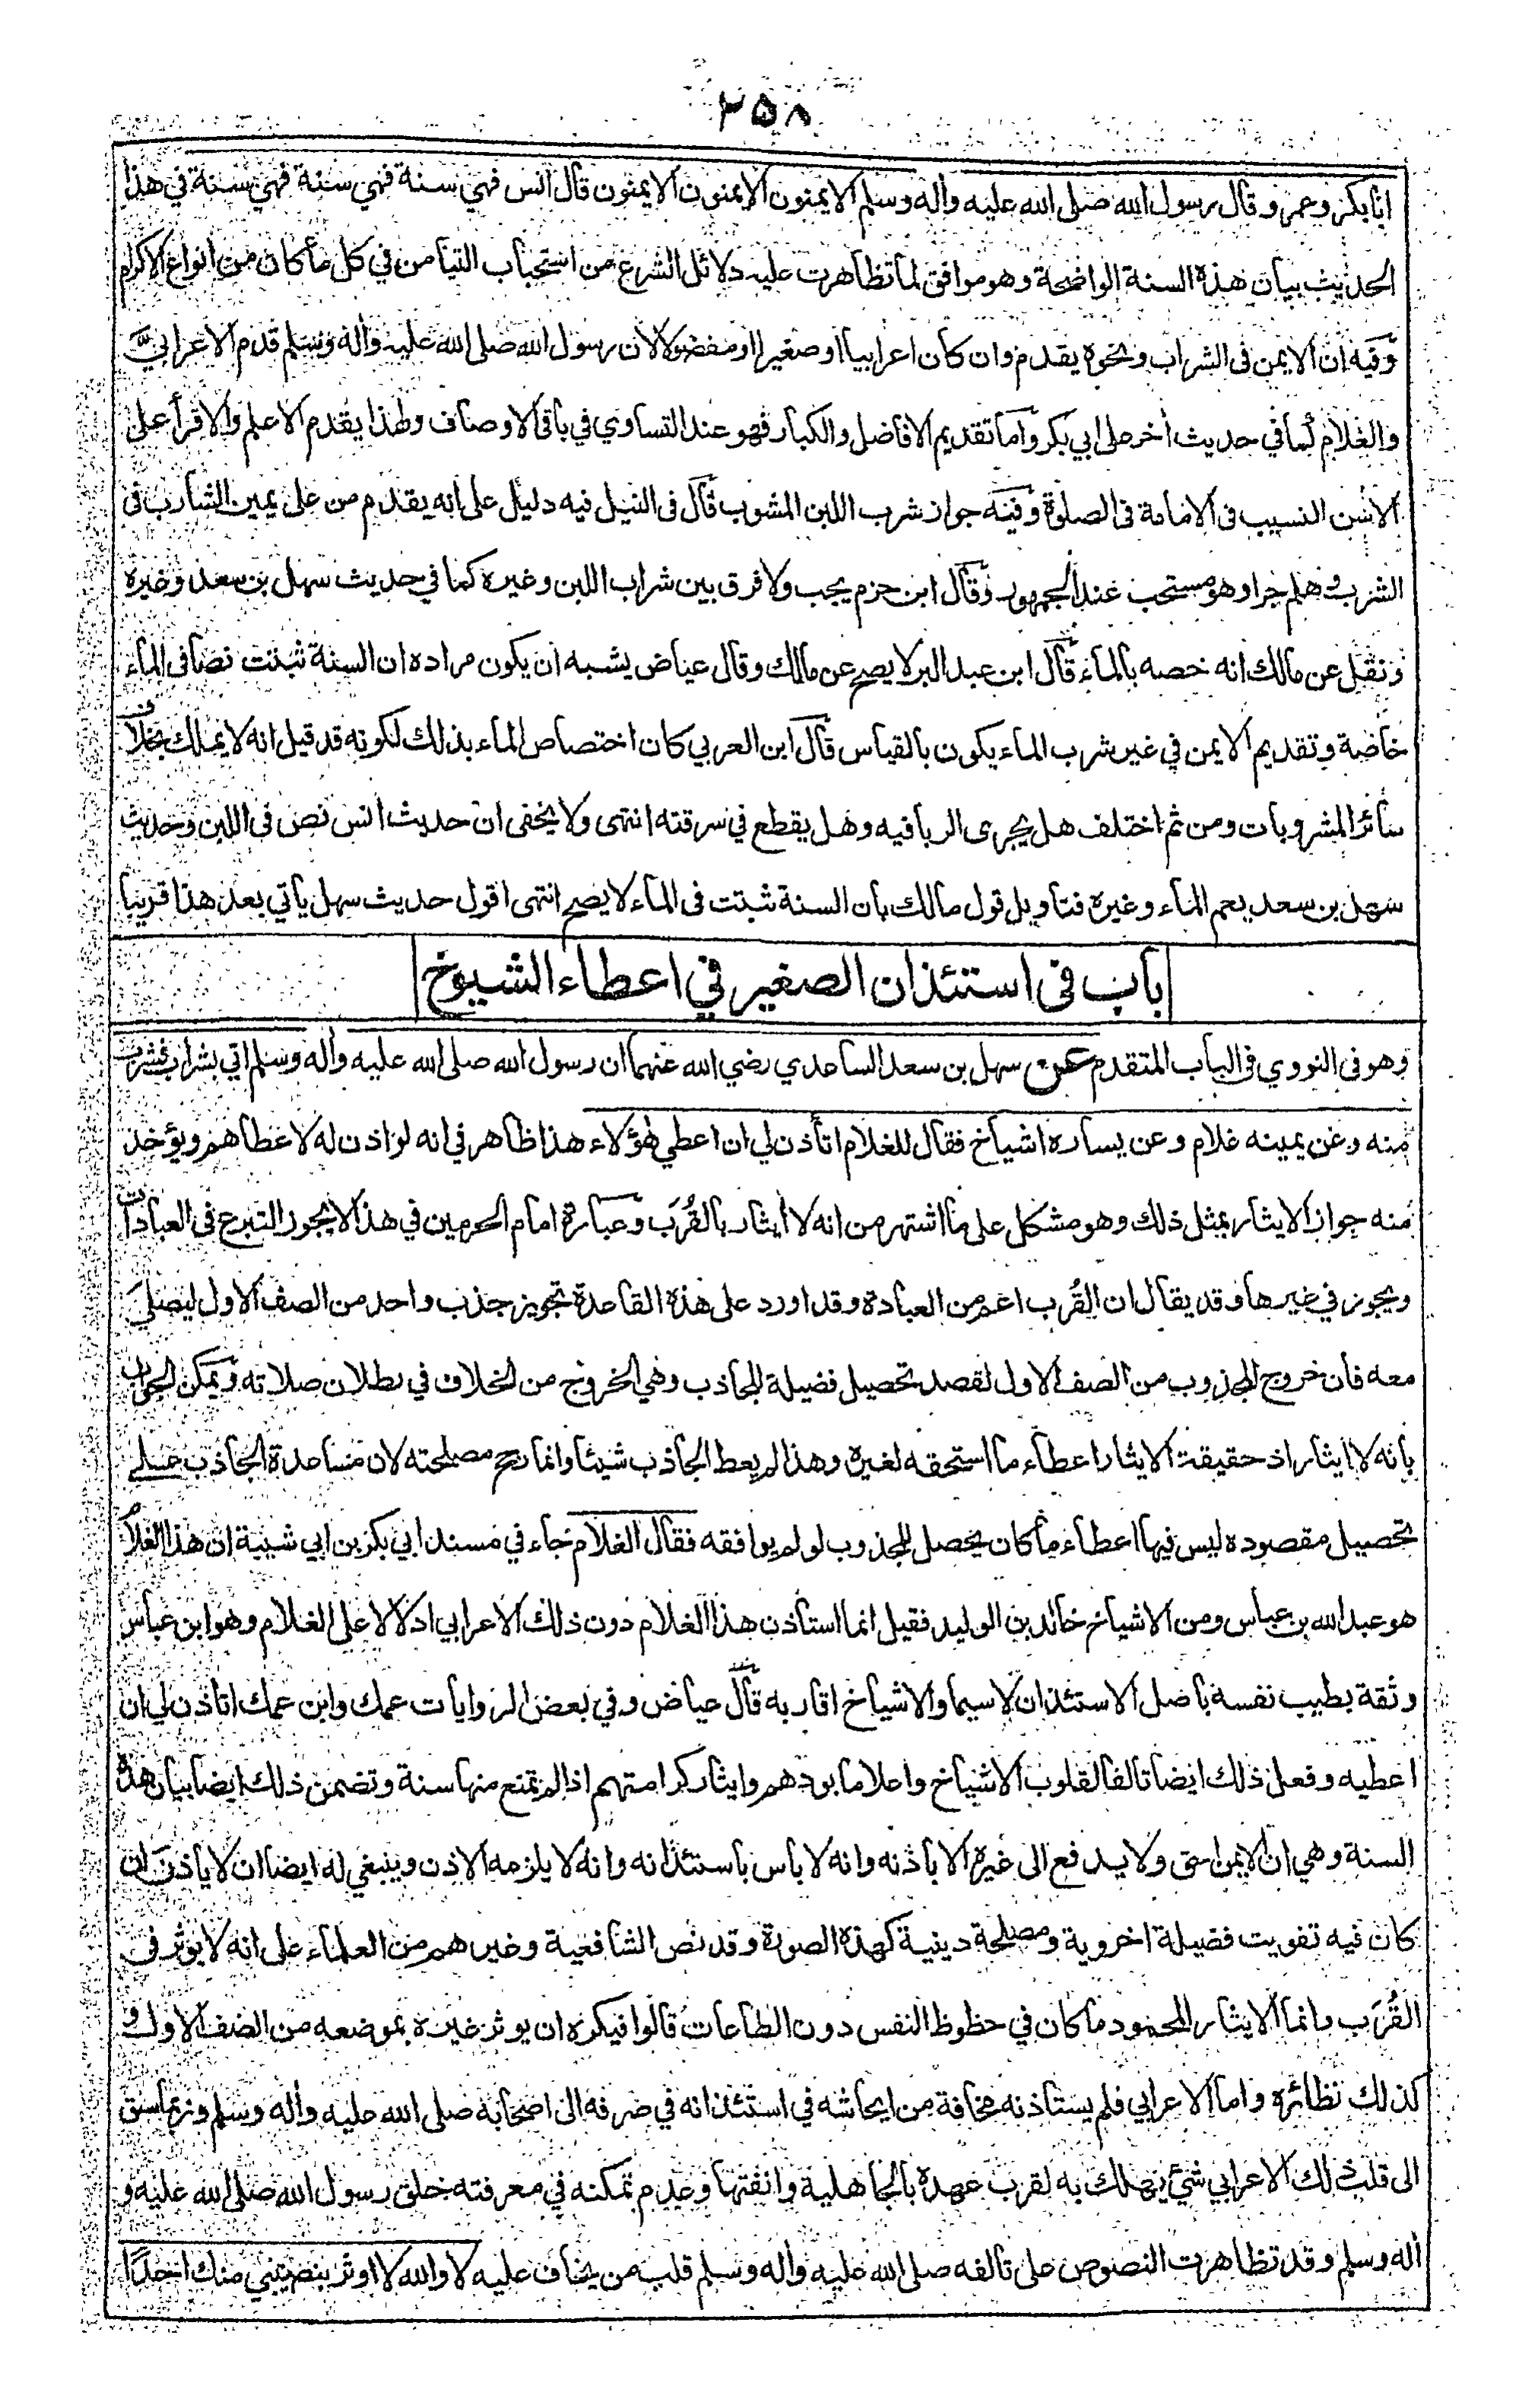 ٢٥٨
ابا بكر وعمر وقال رسول الله صلى الله عليه وأله وسلم الايمنون الايمنون الايمنون قال انس فهي سنة فهي سنة فهي سنة في هذا
الحديث بيان هذه السنة الواضحة وهو موافق لما تظاهرت عليه دلائل الشرع من استحباب التيامن في كل ما كان من انواع الاكرام
وفيه ان الايمن فى الشراب ونحوه يقدم وان كان اعرابيا او صغيرا او مفضولا لان رسول الله صلى الله عليه وأله وسلم قدم الاعرابي
والغلام كما في حديث أخر على ابي بكر واما تقديم الافاضل والكبار فهو عند التساوي في باقى الاوصاف ولهذا يقدم الاعلم والاقرأ على
الاسن النسيب فى الامامة فى الصلوة وفيه جواز شرب اللبن المشوب قال فى النيل فيه دليل على انه يقدم من على يمين الشارب فى
الشرب وهلم جرا وهو مستحب عند الجمهور وقال ابن حزم يجب ولا فرق بين شراب اللبن وغيره كما في حديث سهل بن سعد وغيره
ونقل عن مالك انه خصه بالماء قال ابن عبد البر لا يصح عن مالك وقال عياض يشبه ان يكون مراده ان السنة ثبتت نصا فى الماء
خاصة وتقديم الايمن في غير شرب الماء يكون بالقياس قال ابن العربي كان اختصاص الماء بذلك لكونه قد قيل انه لا يملك بخلاف
سائر المشروبات ومن ثم اختلف هل يجرى الربا فيه وهل يقطع في سرقته انتهى ولا يخفى ان حديث انس نص فى اللبن وحديث
سهل بن سعد يعم الماء وغيره فتاويل قول مالك بان السنة ثبتت فى الماء لا يصح انتهى اقول حديث سهل يأتي بعد هذا قريبا
باب فى استئذان الصغير في اعطاء الشيوخ
وهو فى النووي فى الباب المتقدم عن سهل بن سعد الساعدي رضي الله عنهما ان رسول الله صلى الله عليه وأله وسلم اتي بشراب فشرب
منه وعن يمينه غلام وعن يساره اشياخ فقال للغلام اتأذن لي ان اعطي هؤلاء هذا ظاهر في انه لو اذن له لاعطاهم ويؤخذ
منه جواز الايثار بمثل ذلك وهو مشكل على ما اشتهر من انه لا أيثار بالقُرَب وعبارة امام الحرمين في هذا لا يجوز التبرع فى العبادات
ويجوز في غيرها وقد يقال ان القُرب اعم من العبادة وقد اورد على هذه القاعدة تجويز جذب واحد من الصف الاول ليصلي
معه فان خروج المجذوب من الصف الاول لقصد تحصيل فضيلة للجاذب وهي الخروج من الخلاف في بطلان صلاته ويمكن الجواب
بانه لا ايثار اذ حقيقة الايثار اعطاء ما استحقه لغيره وهذا لم يعط الجاذب شيئا وانما رجح مصلحته لان مساعدة الجاذب على
تحصيل مقصوده ليس فيها اعطاء ما كان يحصل للمجذوب لو لم يوافقه فقال الغلام جاء في مسند ابي بكر بن ابي شيبة ان هذا الغلام
هو عبد الله بن عباس ومن الاشياخ خالد بن الوليد فقيل انما استأذن هذا الغلام دون ذلك الاعرابي ادلالا على الغلام وهو ابن عباس
وثقة بطيب نفسه باصل الاستئذان لاسيما والاشياخ اقاربه قال عياض وفي بعض الروايات عمك وابن عمك اتاذن لي ان
اعطيه وفعل ذلك ايضا تالفا لقلوب الاشياخ واعلاما بودهم وايثار كرامتهم اذا لم تمنع منها سنة وتضمن ذلك ايضا بيان هذه
السنة وهي ان الايمن احق ولا يدفع الى غيره الا باذنه وانه لا بأس باستئذانه وانه لا يلزمه الاذن وينبغي له ايضا ان لا ياذن ان
كان فيه تفويت فضيلة اخروية ومصلحة دينية كهذه الصورة وقد نص الشافعية وغيرهم من العلماء على انه لا يؤثر فى
القُرَب وانما الايثار المحمود ما كان في حظوظ النفس دون الطاعات قالوا فيكره ان يوثر غيره بموضعه من الصف الاول و
كذلك نظائره واما الاعرابي فلم يستاذنه مخافة من ايحاشه في استئذانه في صرفه الى اصحابه صلى الله عليه وأله وسلم وربما سبق
الى قلب ذلك الاعرابي شيئ يهلك به لقرب عهده بالجاهلية وانفتها وعدم تمكنه في معرفته خلق رسول الله صلى الله عليه و
أله وسلم وقد تظاهرت النصوص على تألفه صلى الله عليه وأله وسلم قلب من يخاف عليه لا والله لا اوثر بنصيبي منك احدًا